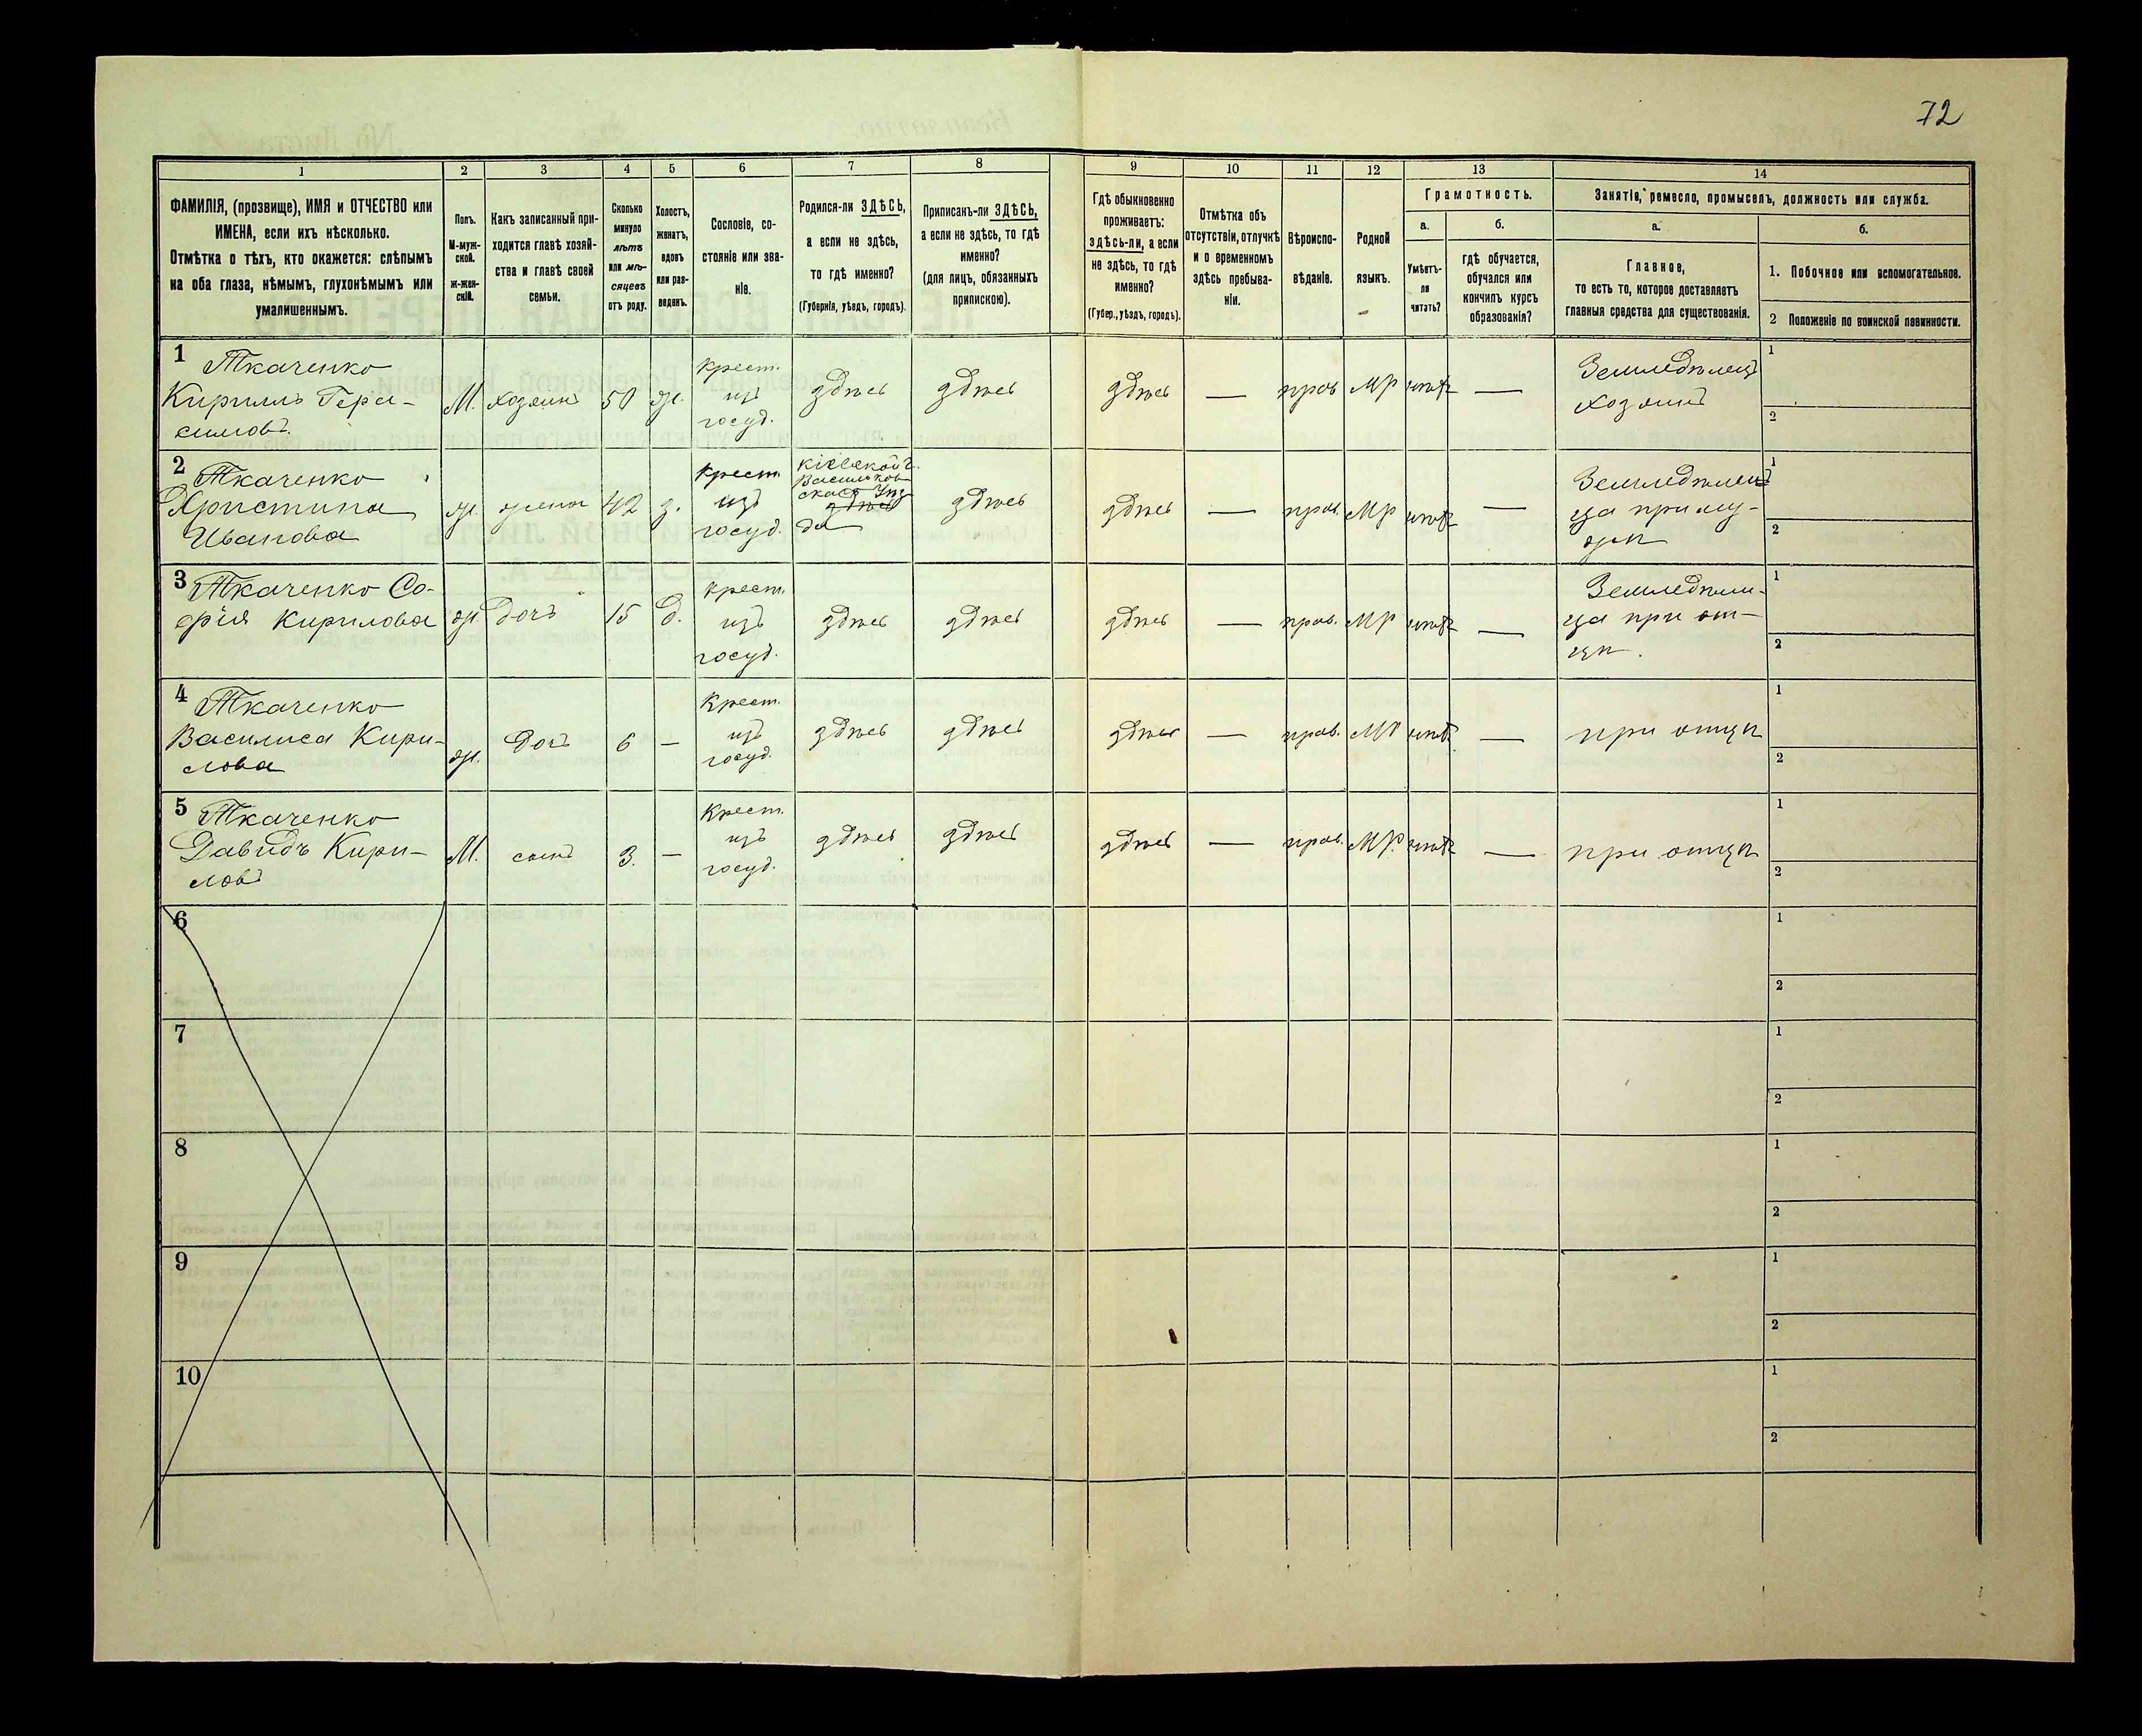 72
1 2 3 4 5 6 7 8 9 10 11 12 13 14
ФАМИЛІЯ, (прозвище), ИМЯ и ОТЧЕСТВО или
ИМЕНА, если ихъ нѣсколько.
Отмѣтка о тѣхъ, кто окажется: слѣпымъ
на оба глаза, нѣмымъ, глухонѣмымъ или
умалишеннымъ.
Полъ.
М-муж-
ской.
Ж-жен-
скій.
Какъ записанный при-
ходится главѣ хозяй-
ства и главѣ своей
семьи.
Сколько
минуло
лѣтъ
или мѣ-
сяцевъ
отъ роду.
Холостъ,
женатъ,
вдовъ
или раз-
веденъ.
Сословіе, со-
стояніе или зва-
ніе.
Родился-ли ЗДѢСЬ,
а если не здѣсь,
то гдѣ именно?
(Губернія, уѣздъ, городъ).
Приписанъ-ли ЗДѢСЬ,
а если не здѣсь, то гдѣ
именно?
(для лицъ, обязанныхъ
припискою).
Гдѣ обыкновенно
проживаетъ:
здѣсь-ли, а если
не здѣсь, то гдѣ
именно?
(Губер., уѣздъ, городъ).
Отмѣтка объ
отсутствіи, отлучкѣ
и о временномъ
здѣсь пребыва-
ніи.
Вѣроиспо-
вѣданіе.
Родной
языкъ.
Грамотность.
а.
Умѣетъ-
ли
читать?
б.
гдѣ обучается,
обучался или
кончилъ курсъ
образованія?
Занятія, ремесло, промыселъ, должность или служба.
а.
Главное,
то есть то, которое доставляетъ
главныя средства для существованія.
б.
1. Побочное или вспомогательное.
2 Положеніе по воинской повинности.
1 Ткаченко
Кириллъ Гера-
симовъ.
М. хозяинъ 50 ж.
крест.
изъ
госуд.
здѣсь здѣсь здѣсь — прав МР нѣтъ —
Земледѣлецъ
хозяинъ
1
2
2 Ткаченко
Христина
Иванова
ж. жена 42 з.
крест.
изъ
госуд.
Кіевской г.
Васильков
скаго Уѣз
здѣсь
да
здѣсь здѣсь — прав. МР нѣтъ —
Земледѣлен
ца при му-
жѣ
1
2
3 Ткаченко Со-
фія Кирилова
ж. дочь 15 д.
крест.
изъ
госуд.
здѣсь здѣсь здѣсь — прав. МР нѣтъ —
Земледѣли-
ца при от-
цѣ.
1
2
4 Ткаченко
Василиса Кири-
лова
ж. дочь 6 —
Крест.
изъ
госуд.
здѣсь здѣсь здѣсь — прав. МР нѣтъ —
при отцѣ
1
2
5 Ткаченко
Давидъ Кири-
ловъ
М. сынъ 3. —
Крест.
изъ
госуд.
здѣсь здѣсь здѣсь — прав. МР. нѣтъ —
при отцѣ
1
2
6
1
2
7
1
2
8
1
2
9
1
2
10
1
2